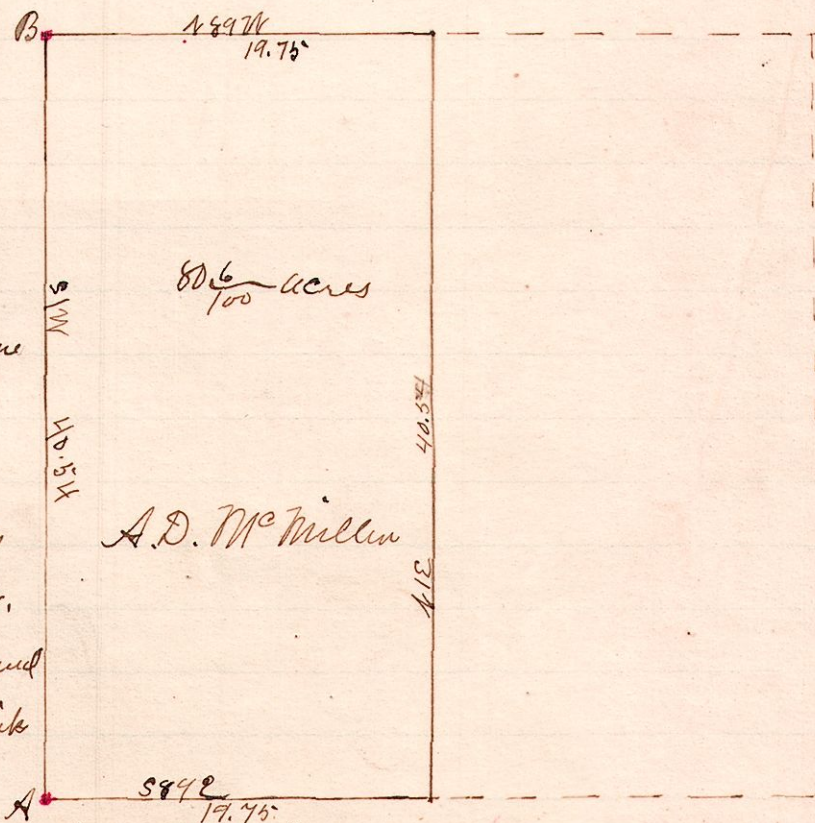 B
N89W
19.75
80 6/100 acres
S1W
40.54
40.54
N1E
A.D. McMillin
A
S89E
19.75